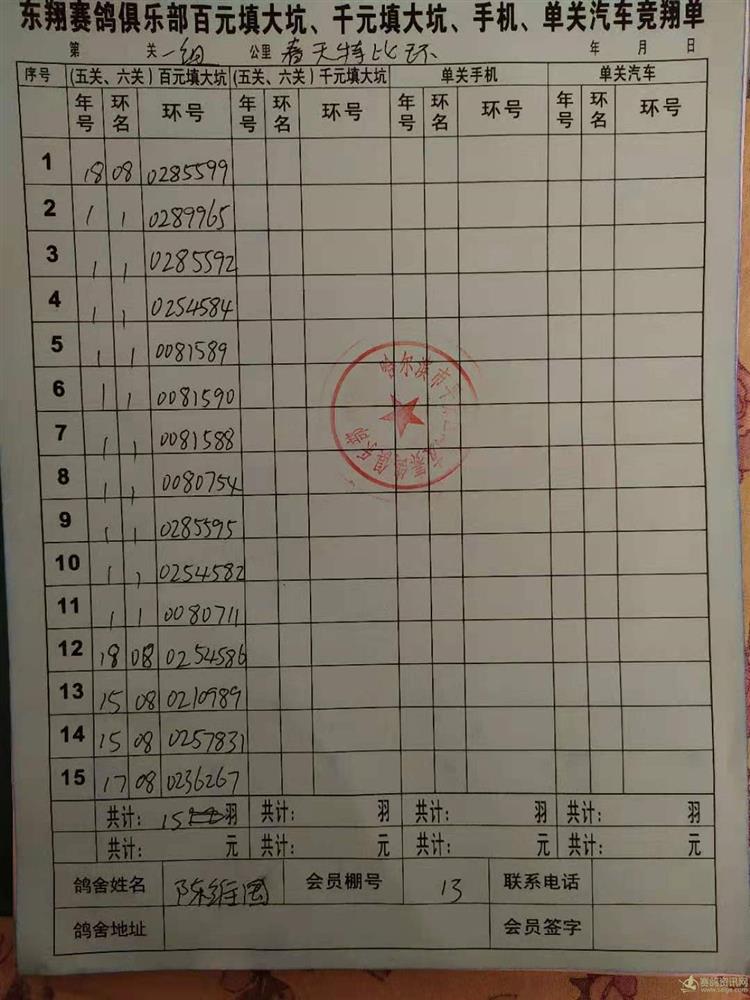 东翔赛鸽俱乐部百元填大坑、千元填大坑、手机、单关汽车竞翔单
第 关 一组 公里 春天特比环 年 月 日
序号 (五关、六关) 百元填大坑 (五关、六关) 千元填大坑 单关手机 单关汽车
年号 环名 环号 年号 环名 环号 年号 环名 环号 年号 环名 环号
1 18 08 0285599
2 1 1 0289965
3 1 1 0285592
4 1 1 0254584
5 1 1 0081589
6 1 1 0081590
7 1 1 0081588
8 1 1 0080754
9 1 1 0285595
10 1 1 0254582
11 1 1 0080711
12 18 08 0254586
13 15 08 0210989
14 15 08 0257831
15 17 08 0236267
共计: 15 羽 共计: 羽 共计: 羽 共计: 羽
共计: 元 共计: 元 共计: 元 共计: 元
鸽舍姓名 陈维国 会员棚号 13 联系电话
鸽舍地址 会员签字
哈尔滨市 赛鸽俱乐部
赛鸽资讯网